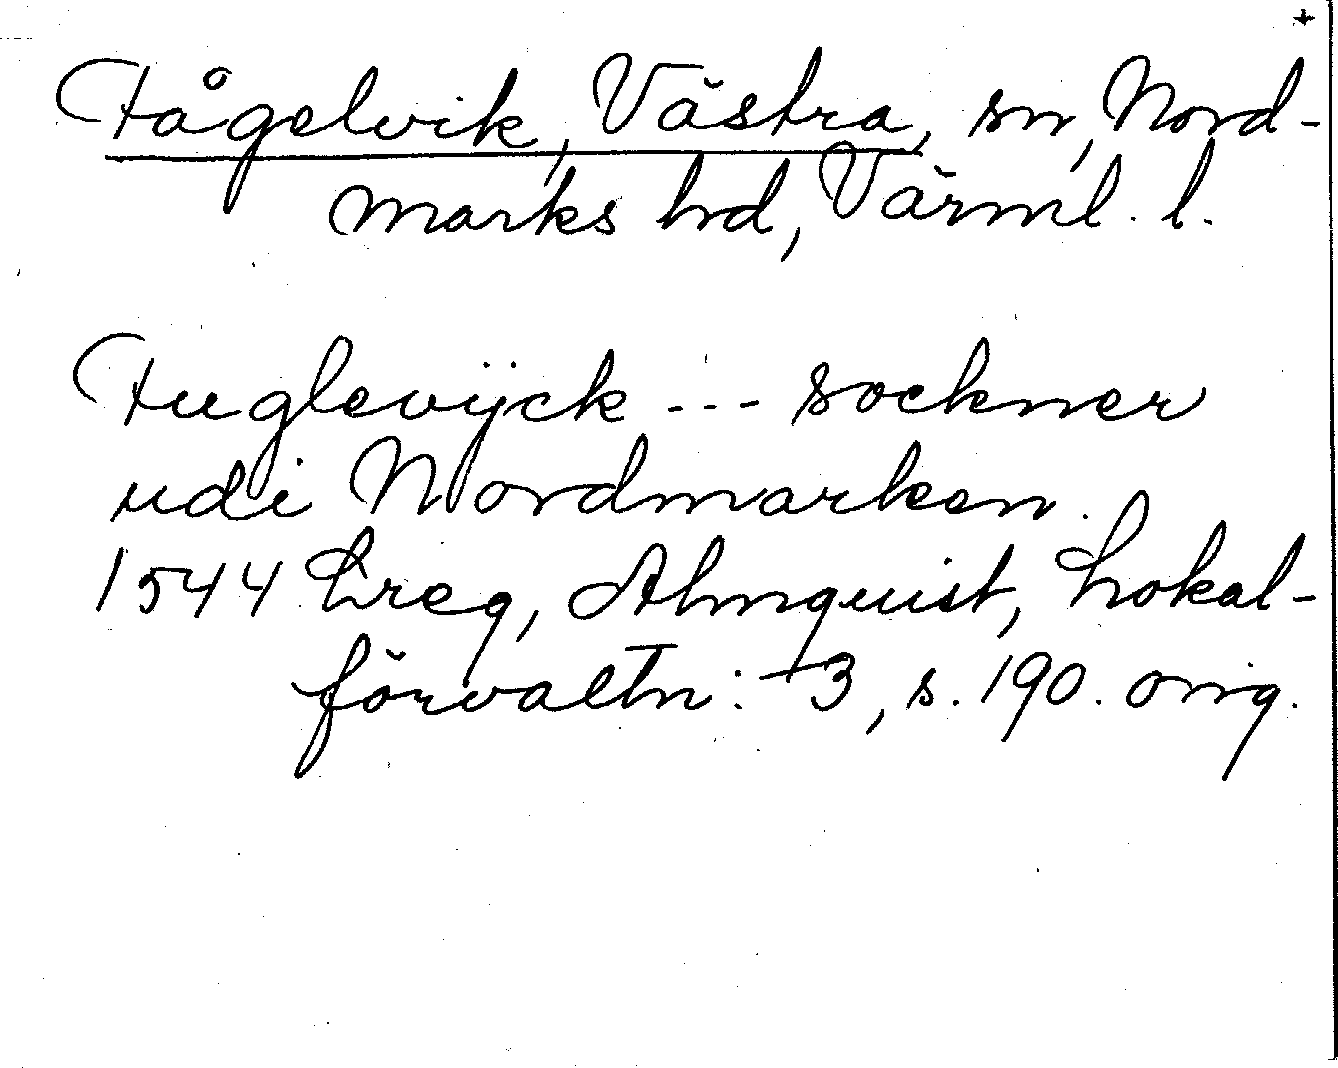 +
Fågelvik, Västra, sn, Nord-
marks hd, Värml. l.
Fuglevijck --- sockner
udi Nordmarken.
1544 Lreg, Almquist, Lokal-
förvaltn: 3, s. 190. orig.